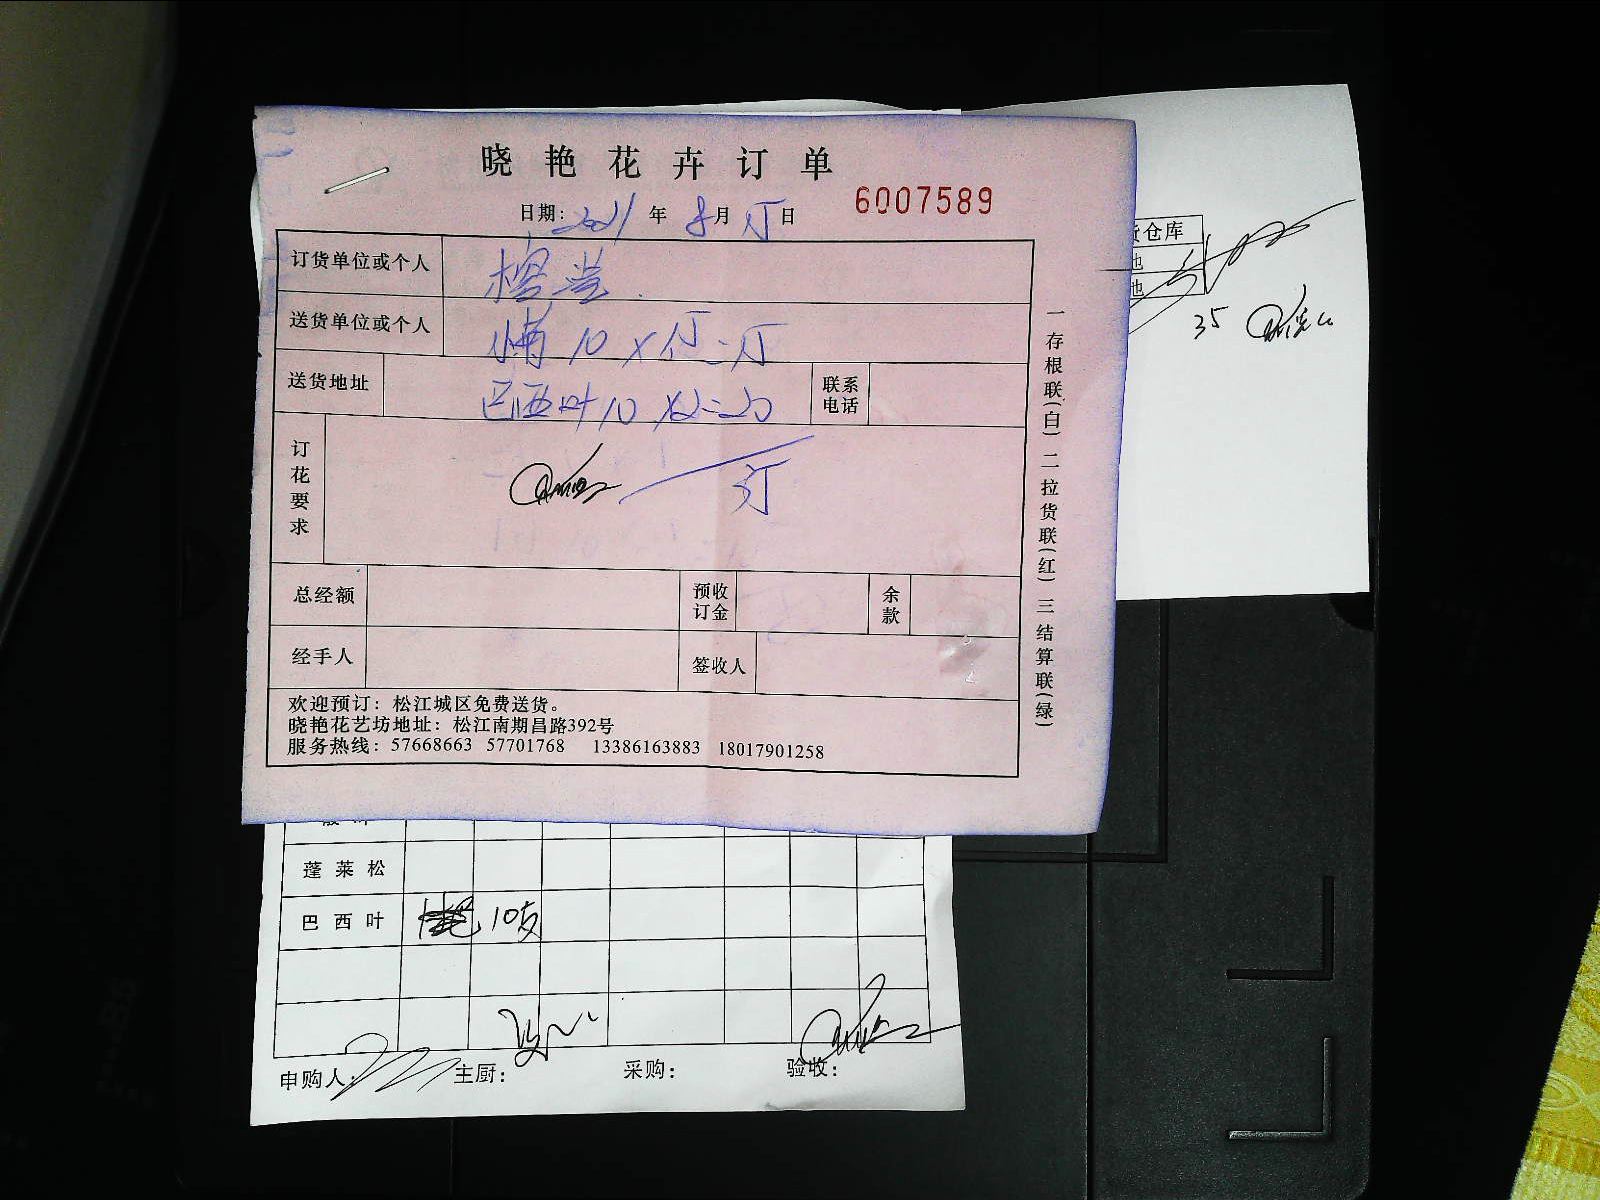 晓艳花卉订单
日期: 2011 年 8 月 15 日 6007589
订货单位或个人
送货单位或个人 10 x 1.5=15
送货地址 巴西叶10 x2=20 联系电话
订花要求 35
总经额 预收订金 余款
经手人 签收人
欢迎预订：松江城区免费送货。
晓艳花艺坊地址：松江南期昌路392号
服务热线：57668663 57701768 13386163883 18017901258
一存根联(白) 二拉货联(红) 三结算联(绿)
仓库
35
蓬莱松
巴西叶 10支
申购人: 主厨: 采购: 验收: